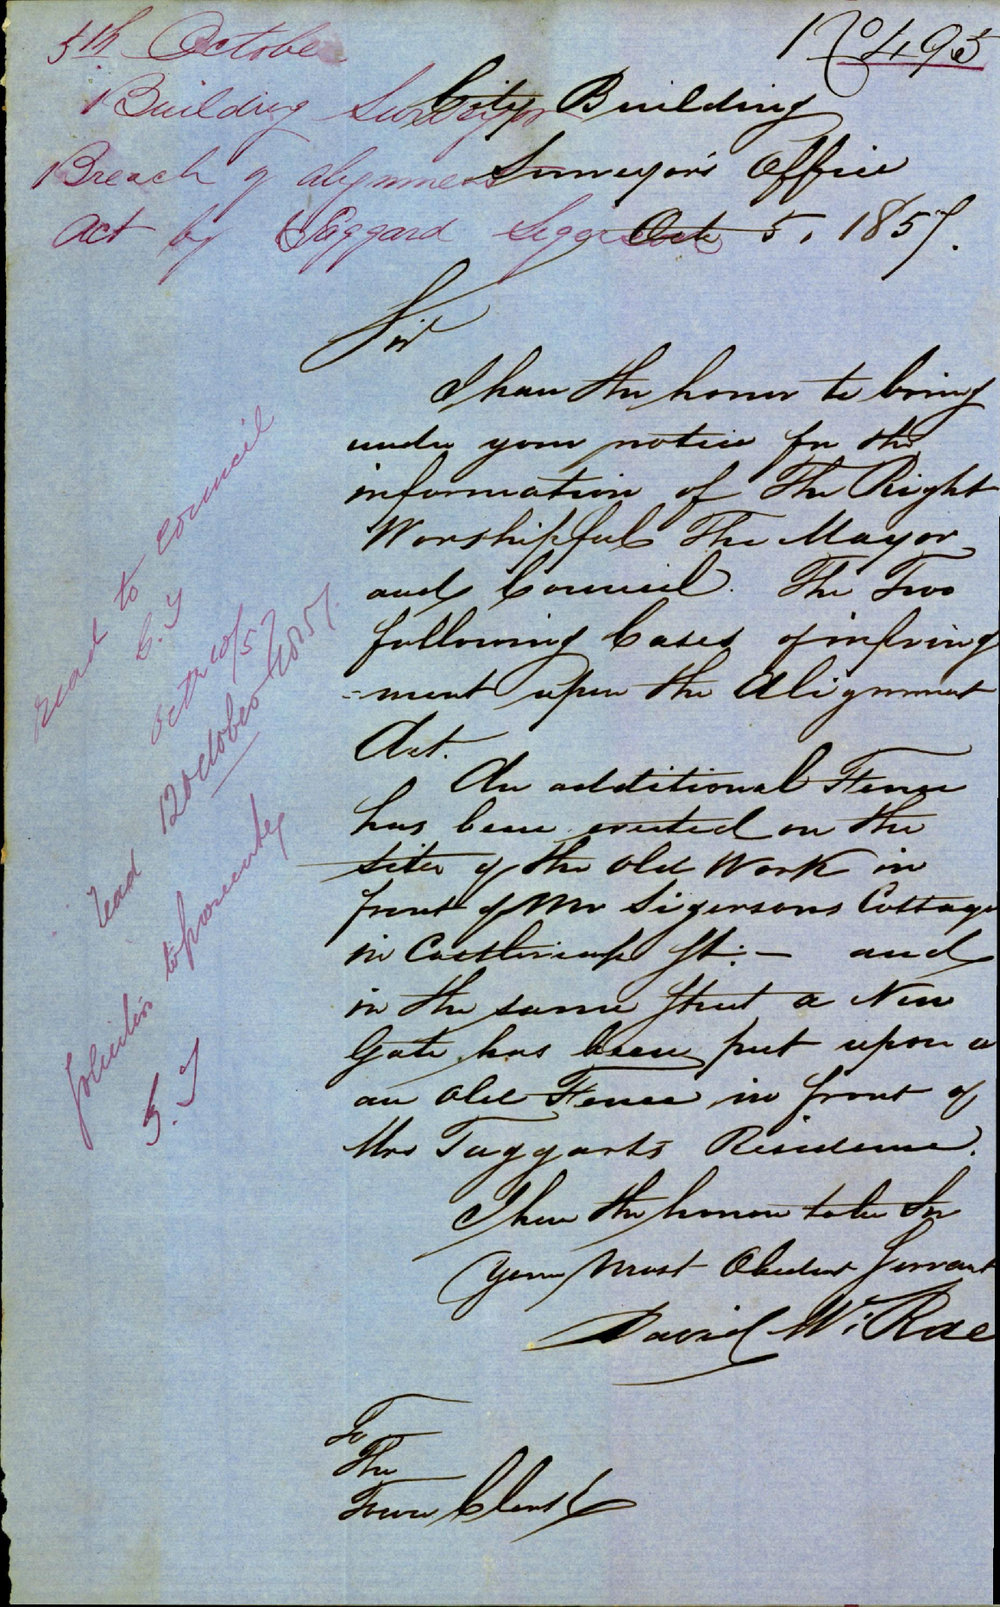 No 495
5th October
Building Surveyor
Breach of alignment
act by Taggard
City Building
Surveyor's Office
Oct 5, 1857.
Sir
I have the honor to bring
under your notice for the
information of The Right
Worshipful The Mayor
and Council. The Two
following Cases of infring
-ment upon the Alignment
Act.
An additional Fence
has been erected on the
site of the old Work in
front of Mr Sigersons Cottage
in Castlereagh St. — and
in the same street a New
Gate has been put upon a
an old Fence in front of
Mrs Taggarts Residence.
I have the honor to be Sir
Your Most Obedient Servant
David McRae
To
The
Town Clerk
read to Council
Octr 10/57
read 12 October 1857.